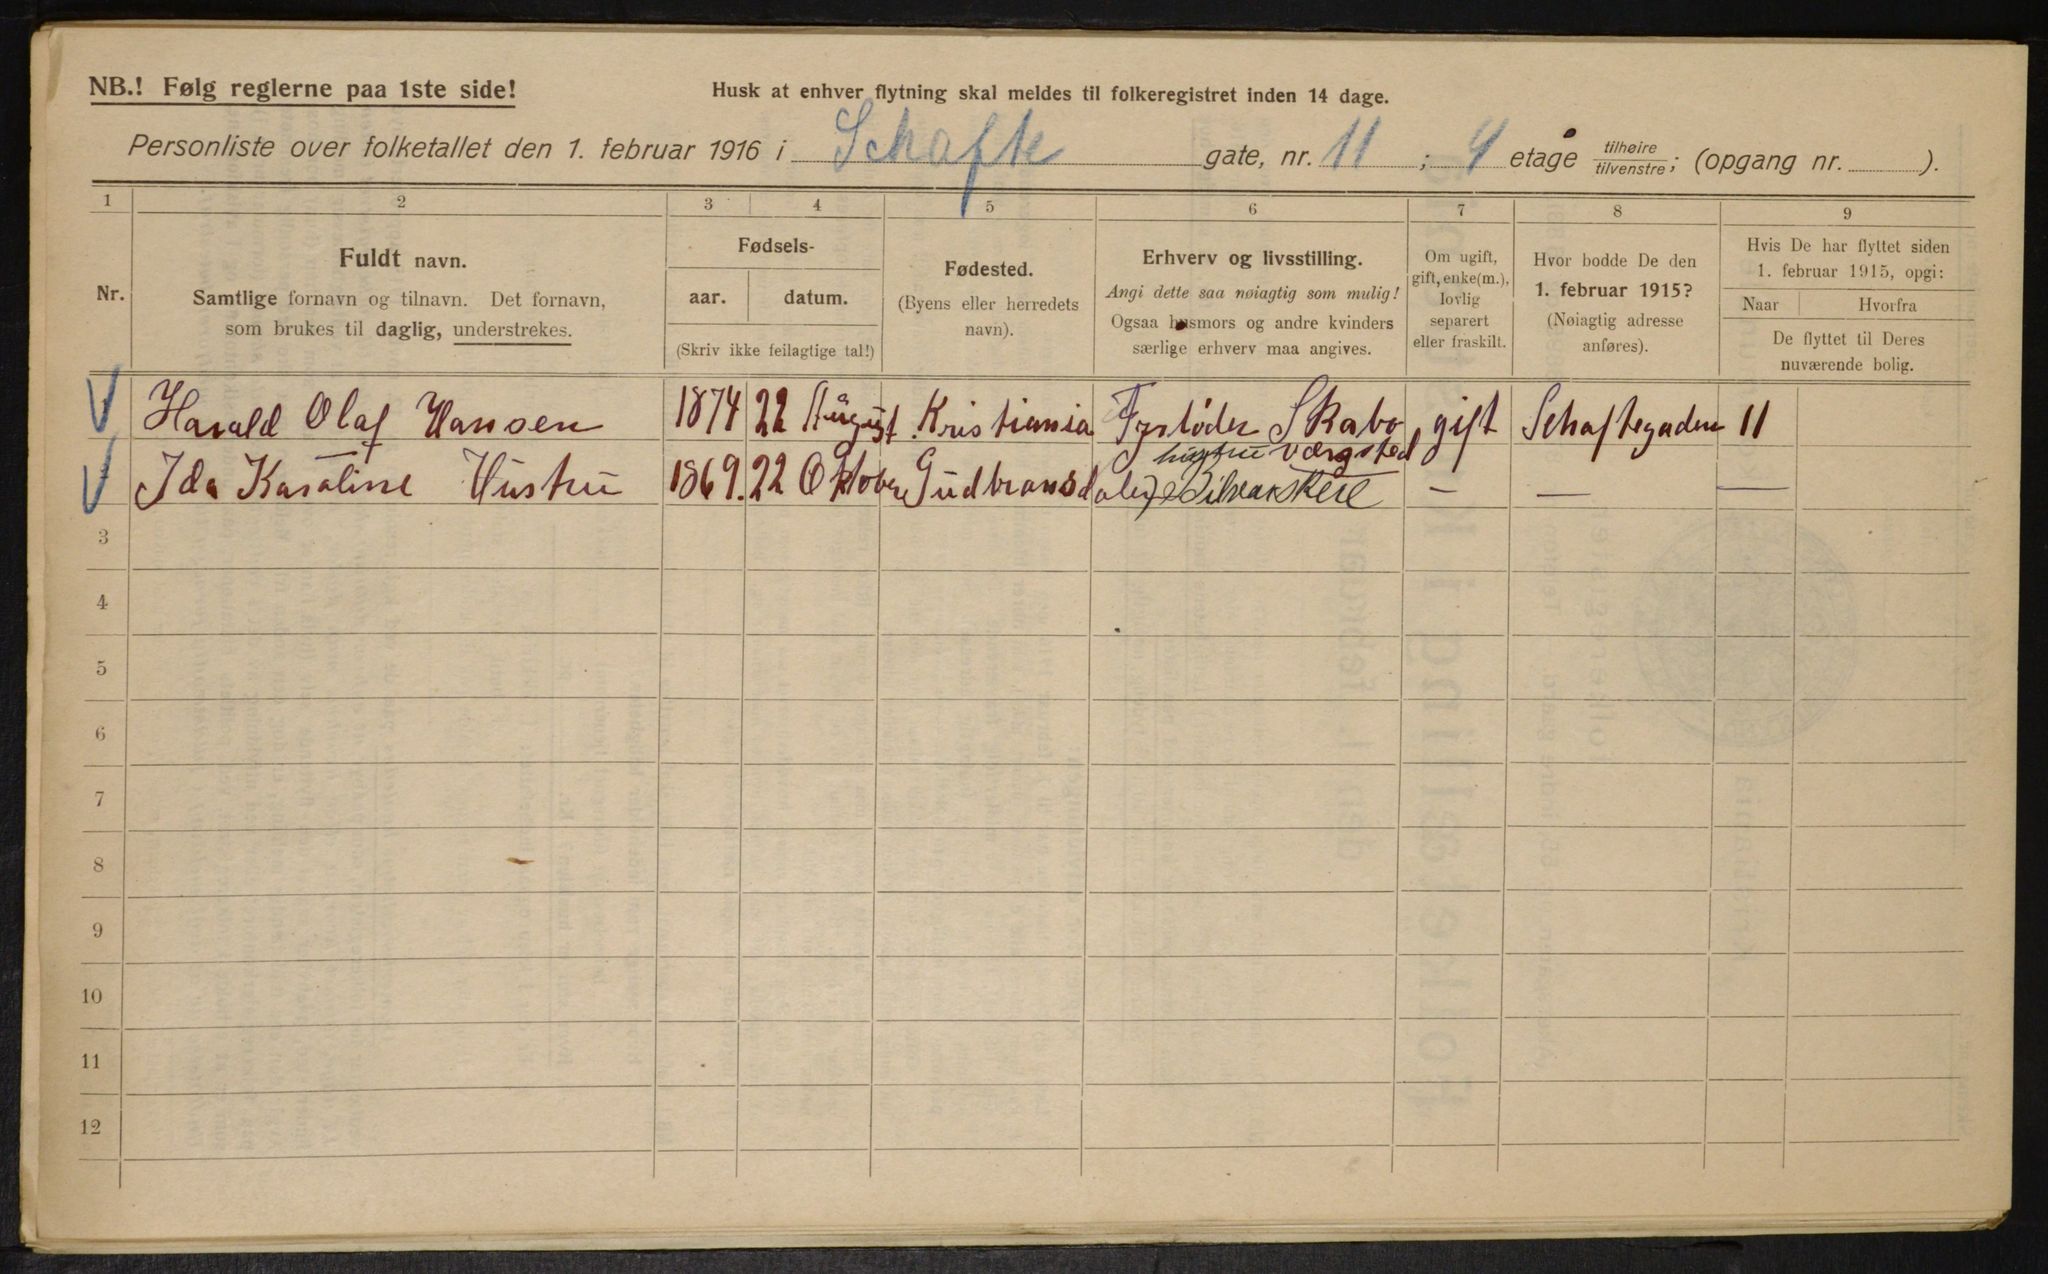 NB.! Følg reglerne paa 1ste side!
Husk at enhver flytning skal meldes til folkeregistret inden 14 dage.
Personliste over folketallet den 1. februar 1916 i Schafte gate, nr. 11 ; 4 etage tilhøire/tilvenstre; (opgang nr. ).
1 2 3 4 5 6 7 8 9
Nr.
Fuldt navn.
Samtlige fornavn og tilnavn. Det fornavn,
som brukes til daglig, understrekes.
Fødsels-
aar. datum.
(Skriv ikke feilagtige tal!)
Fødested.
(Byens eller herredets
navn).
Erhverv og livsstilling.
Angi dette saa nøiagtig som mulig!
Ogsaa husmors og andre kvinders
særlige erhverv maa angives.
Om ugift,
gift, enke(m.),
lovlig
separert
eller fraskilt.
Hvor bodde De den
1. februar 1915?
(Nøiagtig adresse
anføres).
Hvis De har flyttet siden
1. februar 1915, opgi:
Naar Hvorfra
De flyttet til Deres
nuværende bolig.
Harald Olaf Hansen 1874 22 August Kristiania Fyrböder Skabo gift Schaftegaden 11
hustru Værgsted
Ida Karoline Hustru 1869. 22 Oktober Gudbransdalen — — —
3
4
5
6
7
8
9
10
11
12